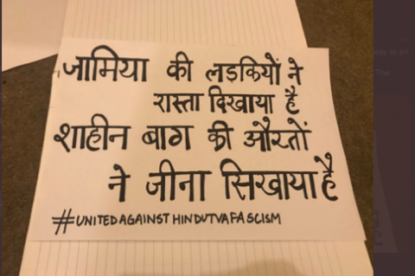 जामिया की लडकियों ने
रास्ता दिखाया है
शाहीन बाग की औरतों
ने जीना सिखाया है
#UNITEDAGAINSTHINDUTVAFASCISM